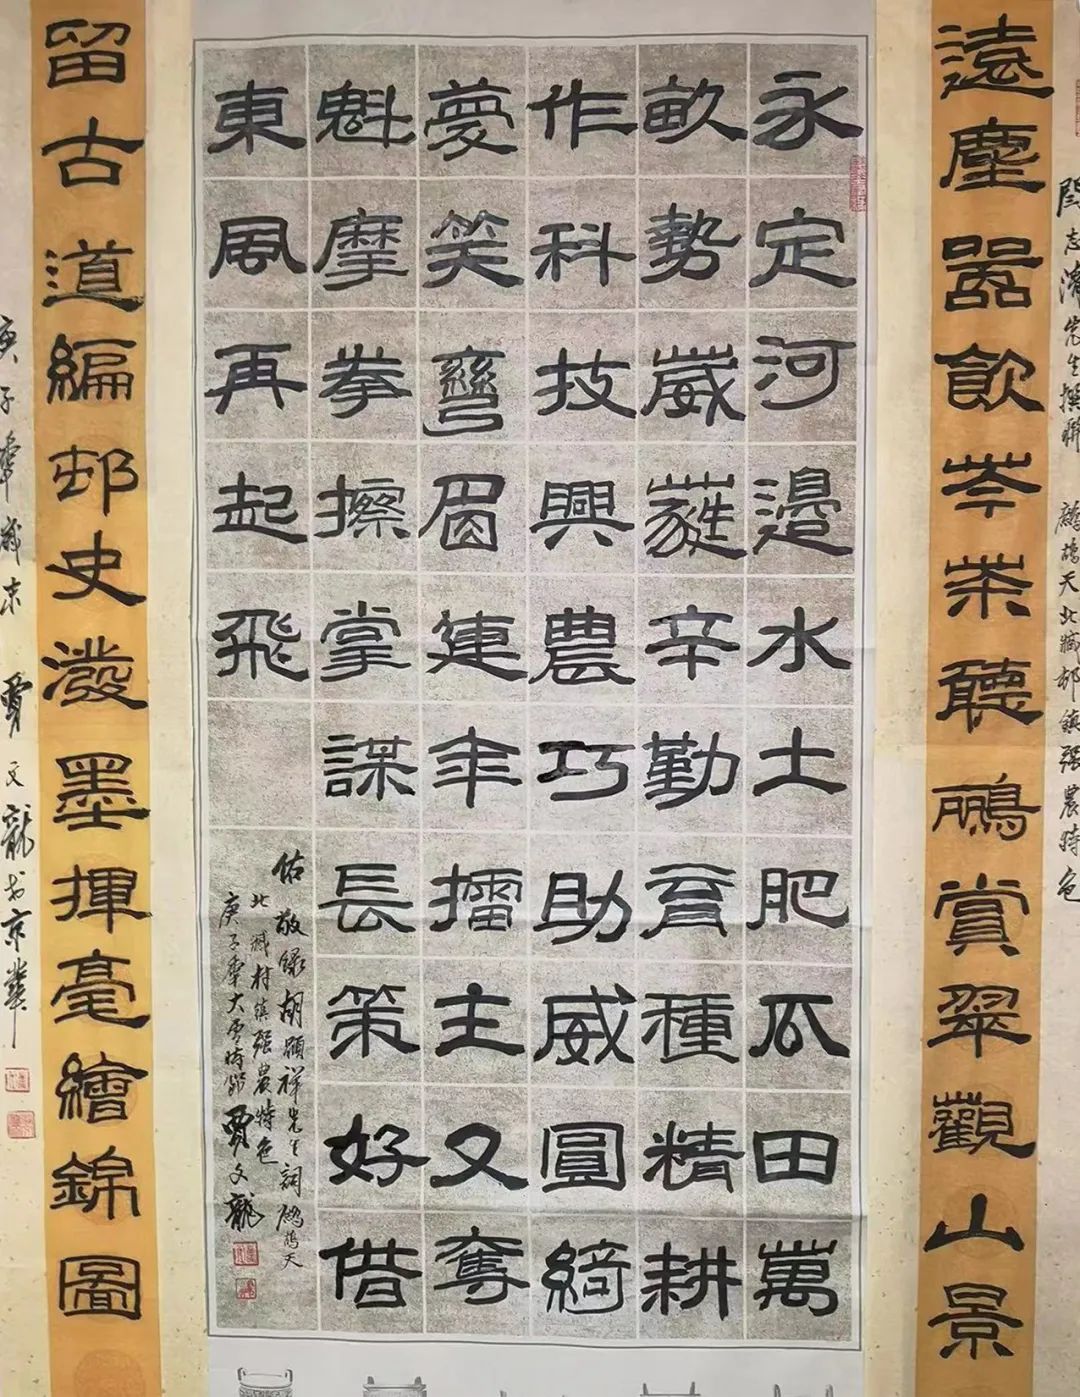 閆志先生撰聯 鷓鴣天北臧邨鎮强農特色
遠塵囂飲岑茶聽鸝賞翠觀山景
永定河邊水土肥瓜田萬
畝勢葳蕤辛勤育種精耕
作科技興農巧助威圓綺
夢笑彎眉連年擂主又奪
魁摩拳擦掌謀長策好借
東風再起飛
敬錄胡顯祥先生詞鷓鴣天
北臧村鎮强農特色
庚子年大雪時節賈文龍
留古道編邨史潑墨揮毫繪錦圖
庚子年歲末 賈文龍書京華